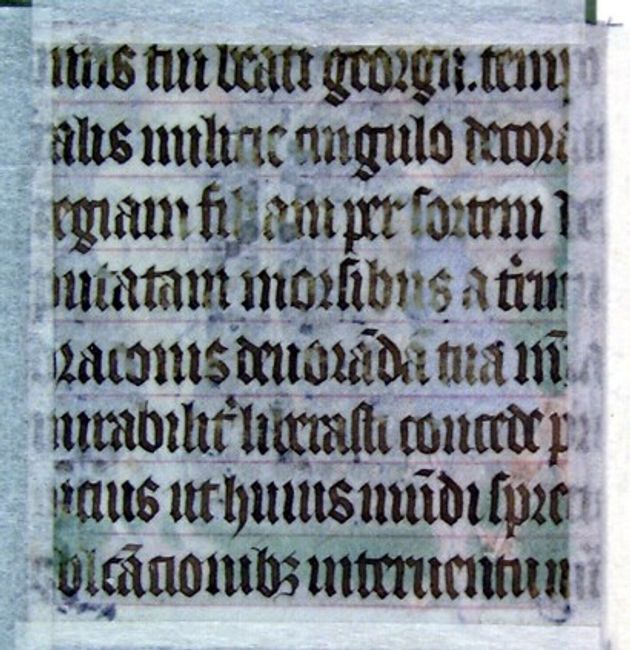 tui beati georgii. temp
alis milicie cingulo decora
egiam filiam per sortem de
putatam morsibus a tru
raconis deuorādā tua m̄
irabilit liberasti concede p
icius ut huius mūdi spre
oblcācionibz interuentu